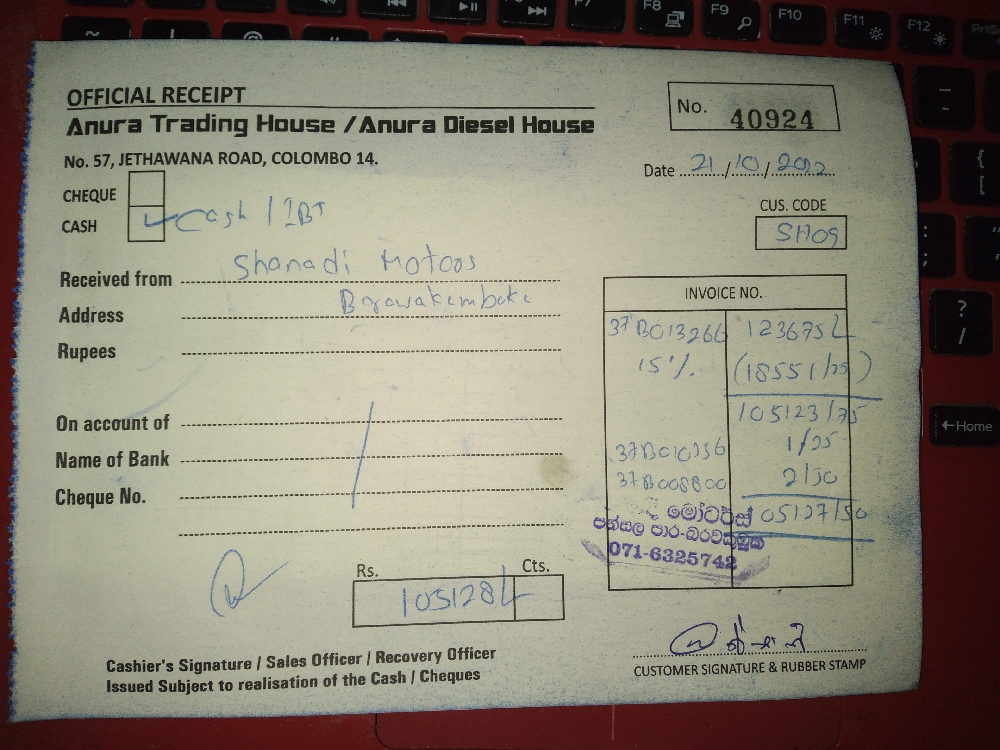 OFFICIAL RECEIPT
Anura Trading House / Anura Diesel House
No. 57, JETHAWANA ROAD, COLOMBO 14.
No. 40924
Date 21/10/2022
CHEQUE
CASH Cash / IBT
CUS. CODE
SH09
Received from Shanadi Motoos
Address
Rupees
On account of
Name of Bank
Cheque No.
INVOICE NO.
37B013266 123675/-
15% (18551/25)
105123/75
37B010356 1/25
37B008800 2/50
105127/50
මෝටර්ස්
පන්සල පාර-බරවකුඹුක
071-6325742
Rs. Cts.
105128/-
Cashier's Signature / Sales Officer / Recovery Officer
Issued Subject to realisation of the Cash / Cheques
CUSTOMER SIGNATURE & RUBBER STAMP
F8
F9
F10
F11
F12
Home